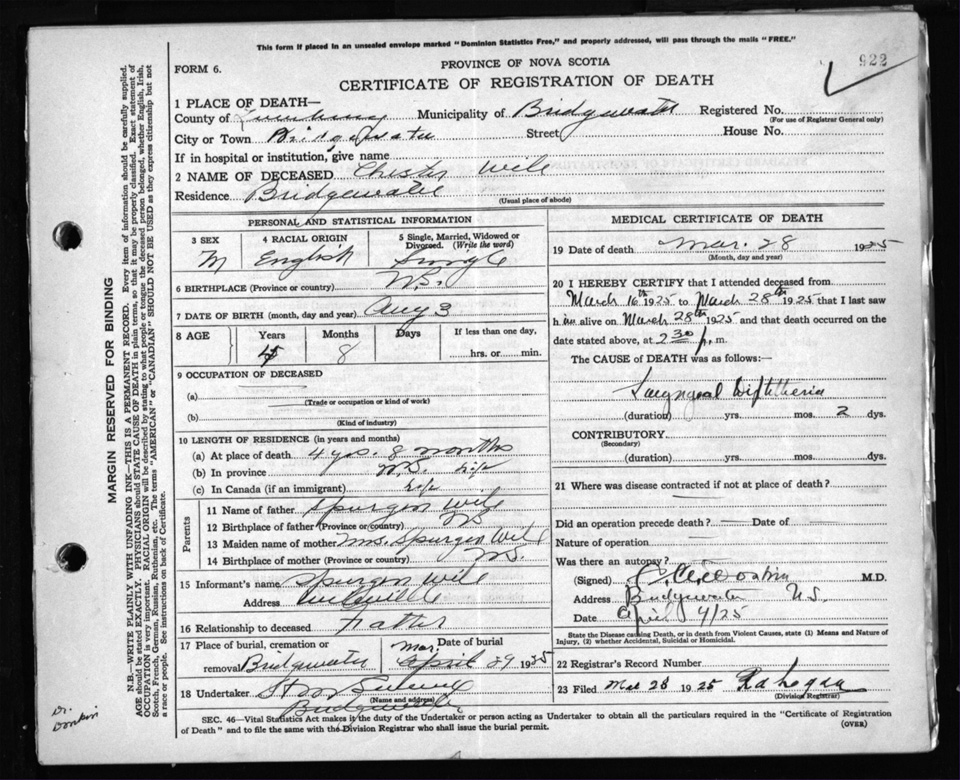 This form if placed in an unsealed envelope marked "Dominion Statistics Free," and properly addressed, will pass through the mails "FREE."
922
FORM 6.
PROVINCE OF NOVA SCOTIA
CERTIFICATE OF REGISTRATION OF DEATH
1 PLACE OF DEATH—
County of Lunenburg Municipality of Bridgewater Registered No.
(For use of Registrar General only)
City or Town Bridgewater Street House No.
If in hospital or institution, give name
2 NAME OF DECEASED Chester Wile
Residence Bridgewater
(Usual place of abode)
PERSONAL AND STATISTICAL INFORMATION
3 SEX 4 RACIAL ORIGIN 5 Single, Married, Widowed or Divorced. (Write the word)
M English Single
6 BIRTHPLACE (Province or country) N.S.
7 DATE OF BIRTH (month, day and year) Aug 3
8 AGE Years Months Days If less than one day,
4 8 hrs. or min.
9 OCCUPATION OF DECEASED
(a)
(Trade or occupation or kind of work)
(b)
(Kind of industry)
10 LENGTH OF RESIDENCE (in years and months)
(a) At place of death 4 yrs. 8 months
(b) In province N.S. life
(c) In Canada (if an immigrant) life
Parents
11 Name of father Spurgen Wile
12 Birthplace of father (Province or country) NS
13 Maiden name of mother Mrs. Spurgen Wile
14 Birthplace of mother (Province or country) N.S.
15 Informant's name Spurgen Wile
Address Wileville
16 Relationship to deceased Father
17 Place of burial, cremation or removal Bridgewater Date of burial Mar. April 29 1925
18 Undertaker
(Name and address)
Bridgewater
MEDICAL CERTIFICATE OF DEATH
19 Date of death Mar. 28 1925
(Month, day and year)
20 I HEREBY CERTIFY that I attended deceased from
March 16th 1925 to March 28th 1925 that I last saw
him alive on March 28th 1925 and that death occurred on the
date stated above, at 2 30 p. m.
The CAUSE of DEATH was as follows:—
Laryngeal Diphtheria
(duration) yrs. mos. 2 dys.
CONTRIBUTORY
(Secondary)
(duration) yrs. mos. dys.
21 Where was disease contracted if not at place of death?
Did an operation precede death? — Date of —
Nature of operation
Was there an autopsy?
(Signed) Donkin M.D.
Address Bridgewater N.S.
Date April 4/25
State the Disease causing Death, or in death from Violent Causes, state (1) Means and Nature of
Injury, (2) whether Accidental, Suicidal or Homicidal.
22 Registrar's Record Number
23 Filed Mar 28 1925
(Division Registrar)
SEC. 46—Vital Statistics Act makes it the duty of the Undertaker or person acting as Undertaker to obtain all the particulars required in the "Certificate of Registration
of Death" and to file the same with the Division Registrar who shall issue the burial permit. (OVER)
MARGIN RESERVED FOR BINDING
N.B.—WRITE PLAINLY WITH UNFADING INK—THIS IS A PERMANENT RECORD. Every item of information should be carefully supplied.
AGE should be stated EXACTLY. PHYSICIANS should STATE CAUSE OF DEATH in plain terms, so that it may be properly classified. Exact statement of
OCCUPATION is very important. RACIAL ORIGIN will be described by stating to what people or tongue the deceased person belonged, whether English, Irish,
Scotch, French, German, Russian, Ruthenian, etc. The terms "AMERICAN" or "CANADIAN" SHOULD NOT BE USED as they express citizenship but not
a race or people. See instructions on back of Certificate.
Dr.
Donkin